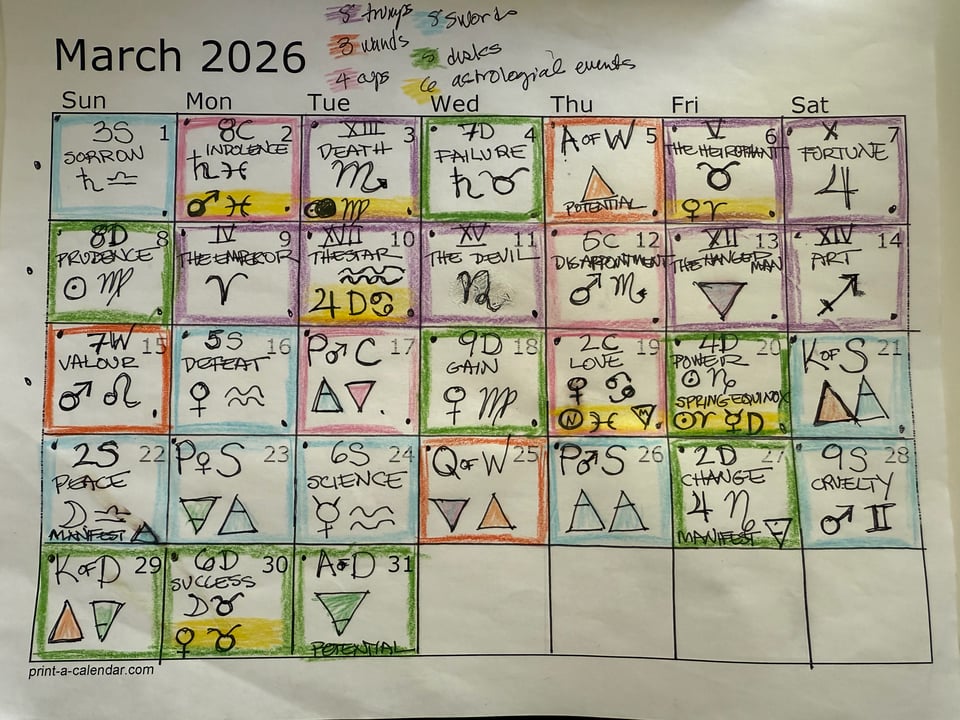 8 trumps 8 swords
3 wands 5 disks
4 cups 6 astrological events
March 2026
Sun Mon Tue Wed Thu Fri Sat
3S 1
SORROW
♄ ♎
8C 2
INDOLENCE
♄ ♓
♂ ♓
XIII 3
DEATH
♏
♍
7D 4
FAILURE
♄ ♉
A OF W 5
POTENTIAL
V 6
THE HEIROPHANT
♉
♀ ♈
X 7
FORTUNE
♃
8D 8
PRUDENCE
☉ ♍
IV 9
THE EMPEROR
♈
XVII 10
THE STAR
♒
♃ D ♋
XV 11
THE DEVIL
♑
5C 12
DISAPPOINTMENT
♂ ♏
XII 13
THE HANGED MAN
▽
XIV 14
ART
♐
7W 15
VALOUR
♂ ♌
5S 16
DEFEAT
♀ ♒
P♂C 17
🜁 ▽
9D 18
GAIN
♀ ♍
2C 19
LOVE
♀ ♋
N ♓
4D 20
POWER
☉ ♑
SPRING EQUINOX
☉ ♈ ☿ D
K OF S 21
△ 🜁
2S 22
PEACE
☽ ♎
MANIFEST 🜁
P♀S 23
🜃 🜁
6S 24
SCIENCE
☿ ♒
Q OF W 25
▽ △
P♂S 26
🜁 🜁
2D 27
CHANGE
♃ ♑
MANIFEST 🜃
9S 28
CRUELTY
♂ ♊
K OF D 29
△ 🜃
6D 30
SUCCESS
☽ ♉
♀ ♉
A OF D 31
🜃
POTENTIAL
print-a-calendar.com